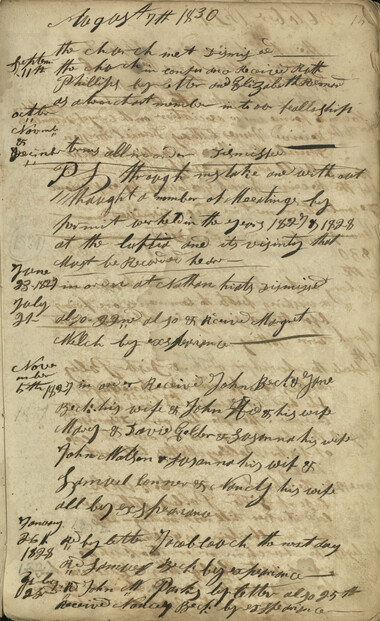 August 7th 1830
the church met Dismised
Septem 11th the church in conference Received Ruth
Phillips by letter and Elizabeth
as a member in to our fellowship
octber
Novemb
&
Decimbr terms all in order Dismisse
P S through mistake and without
thought a number of Meetings by
permit in the years 1827 & 1828
at the and its visinity that
Must be Recorded hear
June
23 1827 in order at Nathan Dismissed
July
21 also & Receive Margret
Welch by experiance
Nove
mber
5th 1827 in order Receive John Beck & Jane
Beck his wife & John & his wife
Mary & David & Susanna his wife
John & Susanna his wife &
Samuel Conner & Nancy his wife
all by experiance
January
26th
1828 Rd by letter Jacob the next day
Rd Samuel Beck by experiance
July
25 Rd John M Parks by letter also 25th
Receive Nancy Beck by experiance